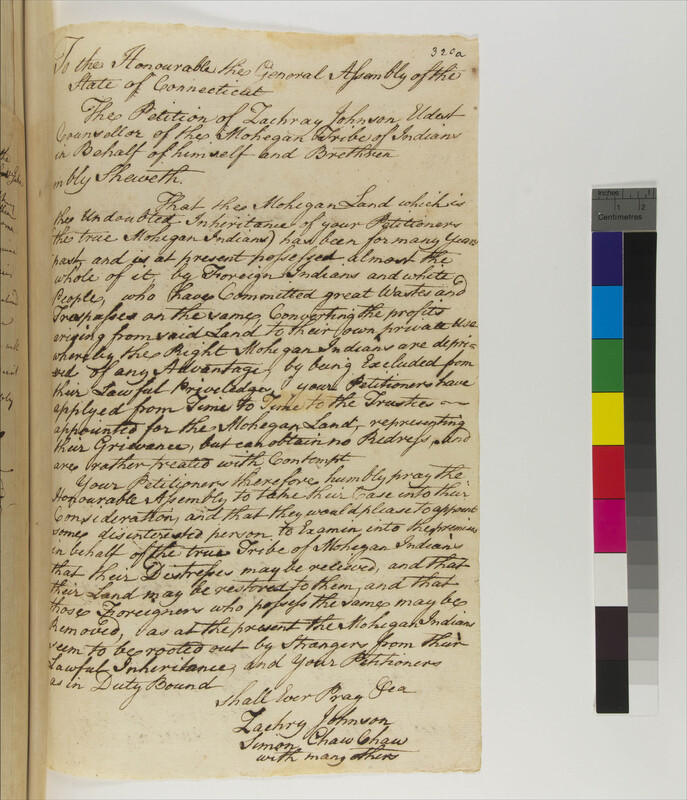 320a
To the Honourable the General Assembly of the
State of Connecticut
The Petition of Zachray Johnson Udest
Counsellor of the Mohegan Tribe of Indians
in Behalf of himself and Brethren
mbly Sheweth
That the Mohegan Land which is
the Undoubted Inheritance of your Petitioners
(the true Mohegan Indians) has been for many Years
past, and is at present possessed almost the
whole of it, by Foreign Indians and white
People, who have Committed great Wastes and
Trespasses on the same, Converting the profits
arising from said Land to their own private Use
whereby the Right Mohegan Indians are depri-
ved of any Advantage, by being Excluded from
their Lawful Priveledges, your Petitioners have
applyed from Time to Time to the Trustees
appointed for the Mohegan Land, representing
their Grievance, but can obtain no Redress, and
are rather treated with Contempt
Your Petitioners therefore humbly pray the
Honourable Assembly to take their Case into their
Consideration, and that they would please to appoint
some disinterested person to Examin into the premises
in behalf of the true Tribe of Mohegan Indians
that their Destresses may be releived, and that
their Land may be restored to them, and that
those Foreigners who possess the same may be
Removed, as at the present the Mohegan Indians
seem to be rooted out by Strangers from their
Lawful Inheritance, and Your Petitioners
as in Duty Bound
Shall Ever Pray &ca
Zachry Johnson
Simon Chaw Chaw
with many others
Inches
1 2
Centimetres